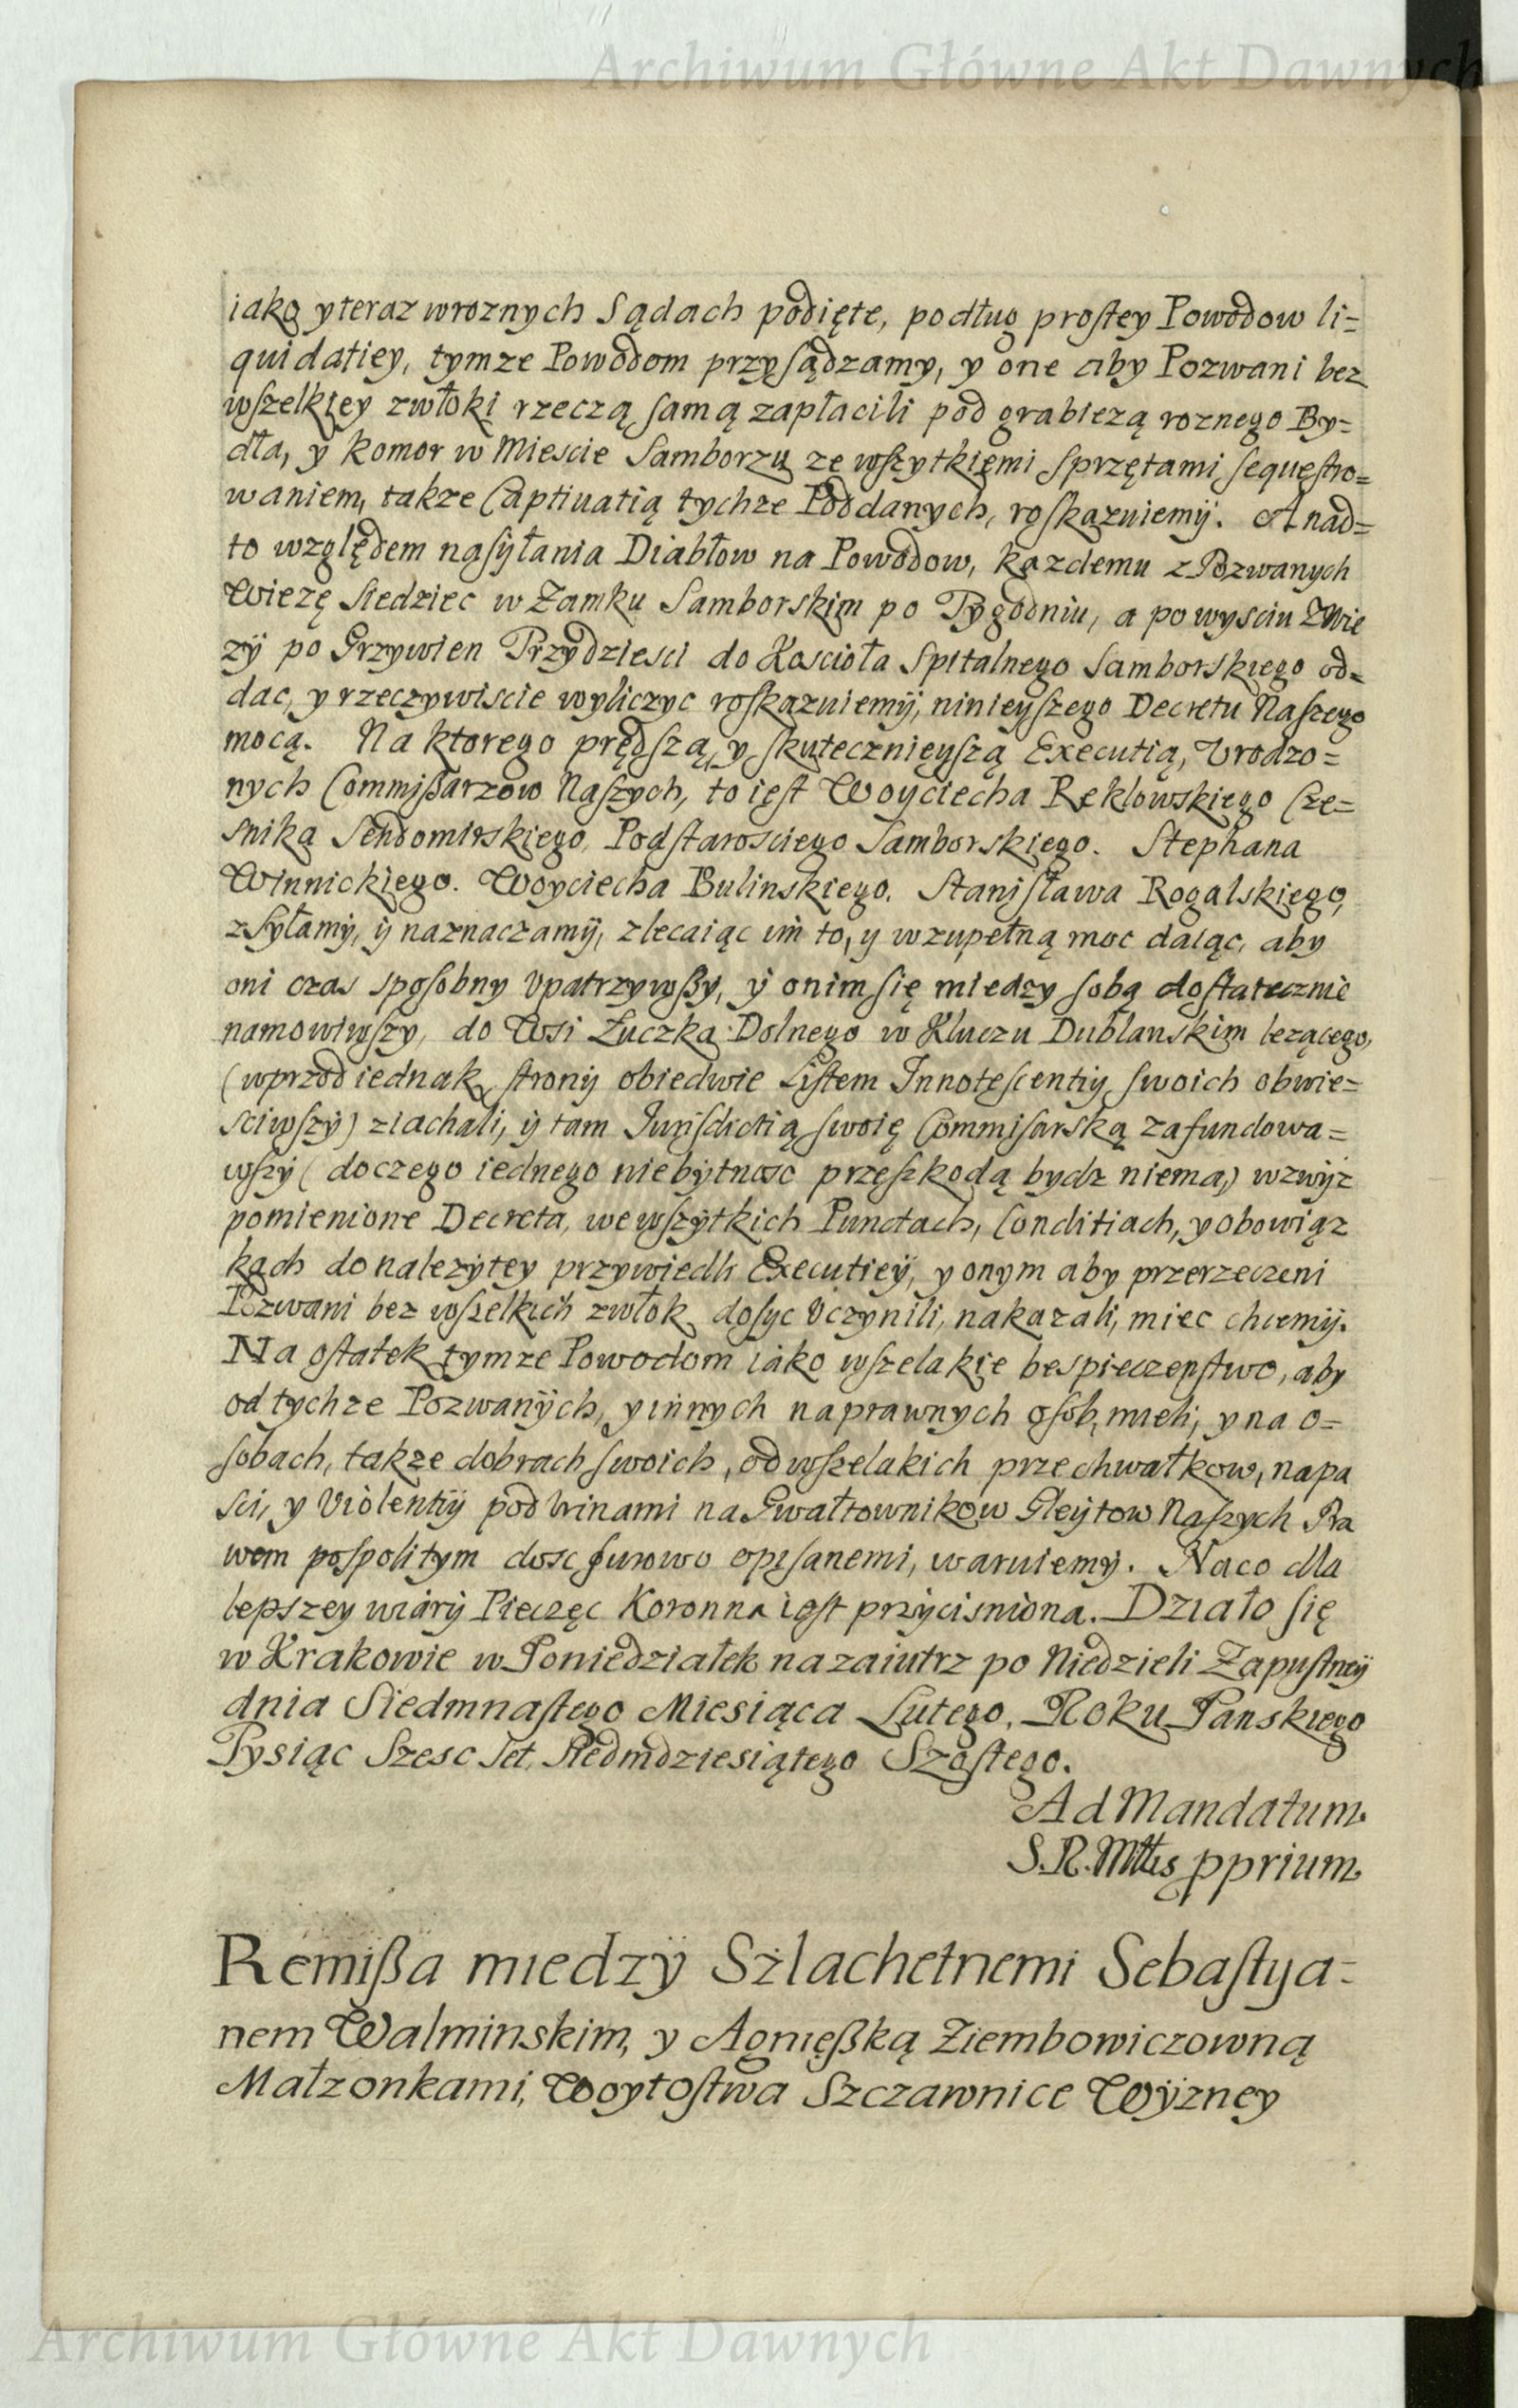 Archiwum Główne Akt Dawnych
iako y teraz w roznych Sądach podięte, podług prostey Powodow li=
quidatiey, tymze Powodom przysądzamy, y one aby Pozwani bez
wszelkiey zwłoki rzeczą samą zapłacili pod grabiezą roznego By=
dła, y komor w Miescie Samborzu ze wszytkiemi sprzętami sequestro=
waniem, takze Captiuatią tychze Poddanych, roskazuiemy. A nad=
to względem nasyłania Diabłow na Powodow, kazdemu z Pozwanych
Wiezę siedziec w Zamku Samborskim po Tygodniu, a po wysciu z Wie
zy po Grzywien Trzydziesci do Koscioła Spitalnego Samborskiego od=
dac, y rzeczywiscie wyliczyc roskazuiemy, ninieyszego Decretu Naszego
mocą. Na ktorego prędszą, y skutecznieyszą Executią, Vrodzo=
nych Commissarzow Naszych, to iest Woyciecha Reklowskiego Cze=
snika Sendomirskiego, Podstarosciego Samborskiego. Stephana
Winnickiego. Woyciecha Bulinskiego. Stanisława Rogalskiego,
zsyłamy, y naznaczamy, zlecaiąc im to, y w zupełną moc daiąc, aby
oni czas sposobny vpatrzywszy, y onim się miedzy sobą dostatecznie
namowiwszy, do Wsi Łuczka Dolnego w Kluczu Dublanskim lezącego,
(wprzod iednak strony obiedwie Listem Innotescentiy swoich obwie=
sciwszy) ziachali, y tam Iurisdictią swoię Commisarską zafundowa=
wszy (doczego iednego niebytnosc przeszkodą bydz niema) wzwyz
pomienione Decreta, we wszytkich Punctach, Conditiach, y obowiąz
kach do nalezytey przywiedli Executiey, y onym aby przerzeczeni
Pozwani bez wszelkich zwłok dosyc vczynili, nakazali, miec chcemy.
Na ostatek tymze Powodom iako wszelakie bespieczenstwo, aby
od tychze Pozwanych, y innych naprawnych osob, mieli, y na o=
sobach, takze dobrach swoich, od wszelakich przechwałkow, napa
sci, y violentiy pod winami na Gwałtownikow Gleytow Naszych Pra
wem pospolitym dosc surowo opisanemi, waruiemy. Naco dla
lepszey wiary Pieczęc Koronna iest przycisniona. Działo się
w Krakowie w Poniedziałek nazaiutrz po Niedzieli Zapustney
dnia Siedmnastego Miesiąca Lutego, Roku Panskiego
Tysiąc Szesc Set, Siedmdziesiątego Szostego.
Ad Mandatum
S. R. Mttis pprium
Remissa miedzy Szlachetnemi Sebastya=
nem Walminskim, y Agnieszką Ziembowiczowną
Małzonkami, Woytostwa Szczawnice Wyzney
Archiwum Główne Akt Dawnych